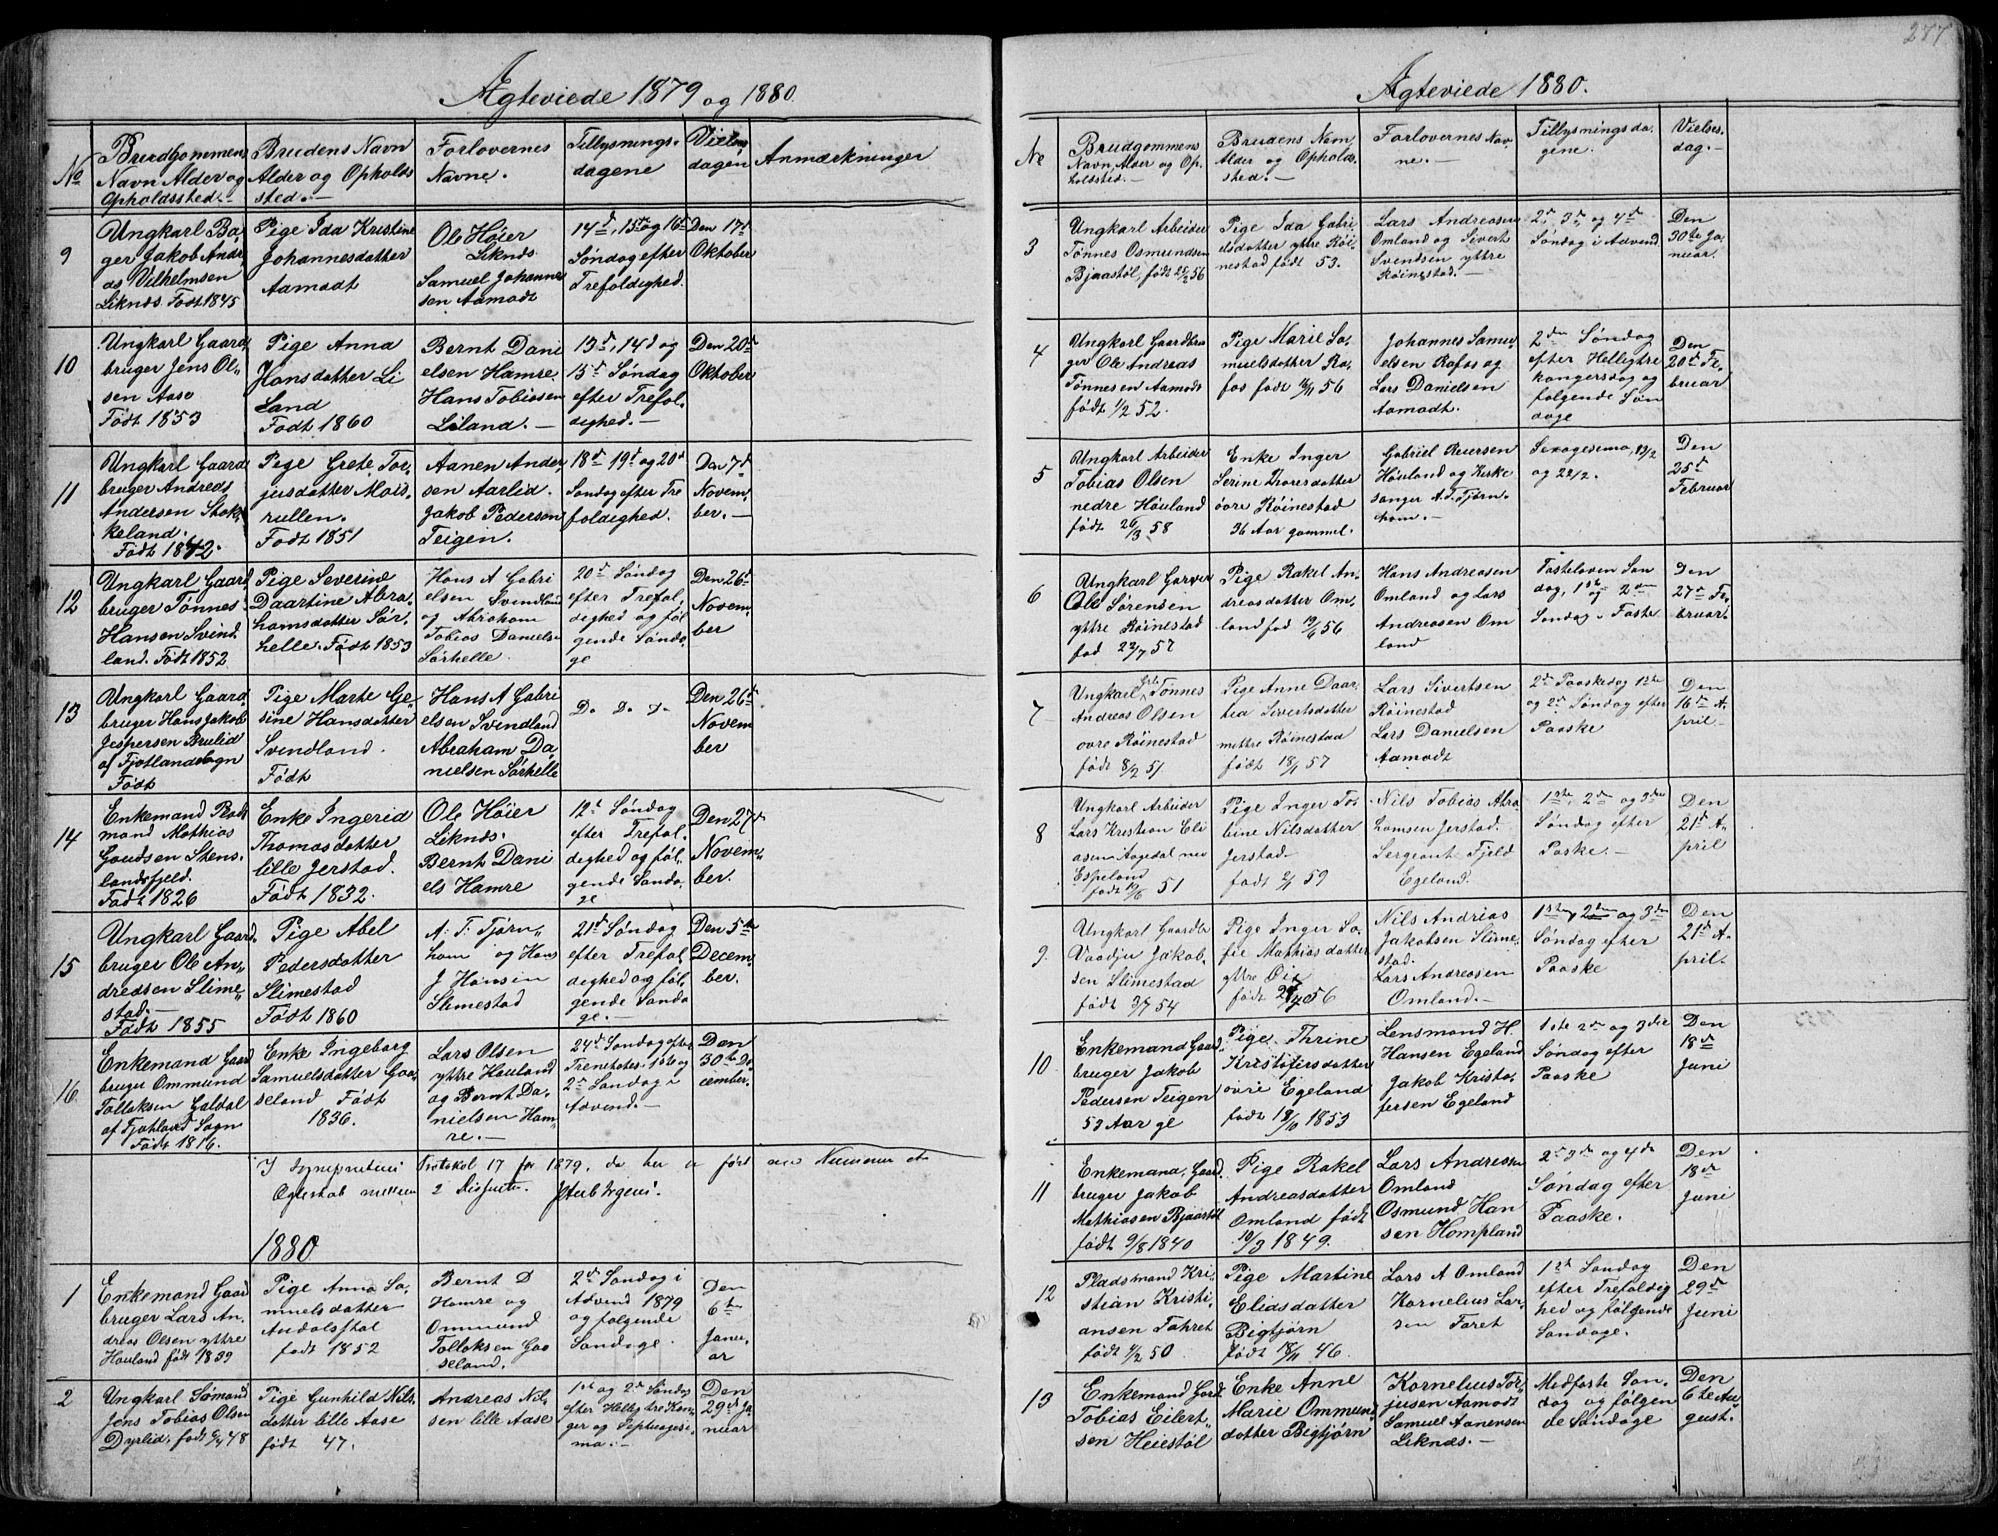 277
Ægteviede 1879 og 1880.
No
Brudgommens
Navn Alder og
Opholdssted.-
Brudens Navn
Alder og Opholds
sted.-
Forlovernes
Navne.
Tillysnings-
dagene
Vielses
dagen
Anmærkninger
9
Ungkarl Bager
Jakob
Vilhelmsen
Liknæs. Født 1845
Pige Ida Kristine
Johannesdatter
Aamodt
Ole Høier
Liknæs
Samuel Johanne
sen Aamodt
14d, 15de og 16d
Søndag efter
Trefoldighed.
Den 17d
Oktober
10
Ungkarl Gaard
bruger Jens Ol-
sen Aase
Født 1853
Pige Anna
Hansdatter Li
land
Født 1860
Bernt Dani
elsen Hamre.
Hans Tobiasen
Liland.-
13d, 14d og
15d Søndag
efter Trefol-
dighed.-
Den 20d
Oktober
11
Ungkarl Gaard
bruger Andreas
Andersen Stok-
keland.
Født 1842.
Pige Grete Tor-
jusdatter Mois
rullen.
Født 1851
Aanen Ander
sen Aarlid.
Jakob Pedersen
Teigen.
18d 19d og 20d
Søndag efter Tre
foldighed.
Den 7d
Novem-
ber.-
12
Ungkarl Gaard
bruger Tønnes
Hansen Svind
land. Født 1852
Pige Severine
Daartine Abra
hamsdatter Sør
helle. Født 1853
Hans A Gabri
elsen Svindland
og Abraham
Tobias Daniels
Sørhelle.
20d Søndag
efter Trefol
dighed og føl
gende Sønda
ge
Den 26d
Novem-
ber
13
Ungkarl Gaard
bruger Hans Jakob
Jespersen Brulid
af Fjotlandsogn
Født
Pige Marte Ge
sine Hansdatter
Svindland.
Født
Hans A Gabri
elsen Svindland
Abraham Da
nielsen Sørhelle
D. D. D.
Den 26d
Novem
ber
14
Enkemand
mand Mathias
Stens
landsfjeld.
Født 1826
Enke Ingerid
Thomasdatter
lille Jerstad.
Født 1832.
Ole Høier
Liknæs.
Bernt Dani
els Hamre
12d Søndag
efter Trefol
dighed og føl-
gende Sønda-
ge
Den 27d
Novem-
ber.
15
Ungkarl Gaard-
bruger Ole An-
dreasen Slime-
stad.-
Født 1855
Pige Abel
Pedersdatter
Slimestad
Født 1860
A. T. Tjørn-
hom og Hans
J Hansen
Slimestad
21d Søndag
efter Trefol
dighed og føl-
gende Sønda
ge.-
Den 5te
Decem-
ber.
16
Enkemand Gaard
bruger Ommund
Tollaksen Galdal
af Fjotland Sogn
Født 1816.
Enke Ingeborg
Samuelsdatter Goa
seland Født
1836.
Lars Olsen
yttre Houland
og Bernt Da-
nielsen Ham-
re.-
24d Søndag efter
1ste og
2d Søndag i
Advend.-
Den
30te De-
cember.
Protokol 17 for 1879, da her er ført Nummer
2
1880.
1
Enkemand Gaard
bruger Lars An-
dreas Olsen yttre
Houland født 1839
Pige Anna Sa-
muelsdatter
født 1852
Bernt D
Hamre og
Ommund
Tollaksen Goa
seland.
2d Søndag i
Advend 1879
og følgende
Søndage.
Den
6te
Janu-
ar
2
Ungkarl Sømand
Jens Tobias Olsen
Dyrlid. født 48
Pige Gunhild Nils-
datter lille Aase
født 47.
Andreas Nil-
sen lille Aase
1ste og 2d Søndag
efter Hellig tre Kon-
ger og Septuagesi-
ma.-
Den
29d Ja-
nuar
Ægteviede 1880.
Ne
Brudgommens
Navn Alder og Op-
holdssted.-
Brudens Navn
Alder og Opholds-
sted.-
Forlovernes Nav-
ne.-
Tillysningsda-
gene.
Vielses-
dag.-
3
Ungkarl Arbeider
Tønnes Osmundsen
Bjaastøl, født 25/2 56
Pige Ida Gabri
elsdatter yttre Røi-
nestad født 53.
Lars Andreasen
Omland og Sivert
Svendsen yttre
Røinestad.
2d, 3d og 4d
Søndag i Advend.
Den
30te Ja-
nuar.
4
Ungkarl Gaardbru
ger Ole Andreas
Tønnesen Aamodt
født 1/2 52.
Pige Marie Sa-
muelsdatter Ra-
fos født 56
Johannes Samu
elsen Rafos og
Lars Danielsen
Aamodt.
2den Søndag
efter Helligtre
kongersdag og
følgende Søn
dage
Den
20d Fe-
bruar
5
Ungkarl Arbeider
Tobias Olsen
nedre Houland
født 26/3 58
Enke Inger
Serine Thoresdatter
øvre Røinestad
36 Aar gammel.
Gabriel Reiersen
Houland og Kirke
sanger A. T. Tjørn-
hom.-
Sexagesima,
og 22/2.
Den
25d
Februar
6
Ungkarl Garver
Ole Sørensen
yttre Røinestad
fød 22/7 57
Pige Rakel An-
dreasdatter Om-
land fød 19/6 56
Hans Andreasen
Omland og Lars
Andreasen Om
land
Fastelaven Søn
dag, 1ste og 2den
Søndag i Faste
Den
27d Fe-
bruar.
7
Ungkarl Tønnes
Andreas Olsen
øvre Røinestad
født 8/2 51.
Pige Anne Daar-
tea Sivertsdatter
mittre Røinestad
født 18/1 57
Lars Sivertsen
Røinestad
Lars Danielsen
Aamodt
2d Paaskedag 1ste
og 2d Søndag efter
Paaske
Den
16d A-
pril-
8
Ungkarl Arbeider
Lars Kristian Eli
asen Aagedal
Espeland
født 19/6 51
Pige Inger To-
bine Nilsdatter
Jerstad-
født 59
Nils Tobias Abra
hamsen Jerstad.
Sergeant Fjeld
Egeland.
1ste, 2d og 3die
Søndag efter
Paske.-
Den
21d A-
pril
9.
Ungkarl
Jakob-
sen Slimestad
født 54
Pige Inger So-
fie Mathiasdatter
yttre
født 56
Nils Andreas
Jakobsen Slime-
stad.
Lars Andreasen
Omland.-
1ste, 2den og 3die
Søndag efter
Paaske
Den
21d A-
pril.
10
Enkemand Gaard-
bruger Jakob
Pedersen Teigen
53 Aar gl
Pige Thrine
Kristofersdatter
øvre Egeland
født 18/10 1853
Lensmand H.
Hansen Egeland
Jakob Kristo-
fersen Egeland
1ste 2d og 3die
Søndag efter
Paaske
Den
18d
Juni
11
Enkemand, Gaard-
bruger Jakob
Mathiasen Bjaastøl
født 9/8 1840
Pige Rakel
Andreasdatter
Omland født
19/3 1849.
Lars Andreasen
Omland
Osmund Han
sen Hompland
2d 3d og 4d
Søndag efter
Paaske.
Den
18d
Juni
12
Pladsmand Kri-
stian Kristi-
ansen Tahret
født 4/2 50
Pige Martine
Eliasdatter
Bigtjørn
født 18/11 46.
Lars A Omland
Kornelius Lar-
sen Taret
1st Søndag
efter Trefoldig
hed og følgende
Søndage.
Den
29d
Juni
13
Enkemand Gard
Tobias Eilert-
sen Heiestøl
Enke Anne
Marie Ommund
datter Bigtjørn
Kornelius Tor-
jusen Aamodt
Samuel Aanensen
Liknæs.-
Midfaste Søn-
dag og følgen
de Søndage
Den
6te Au-
gust.